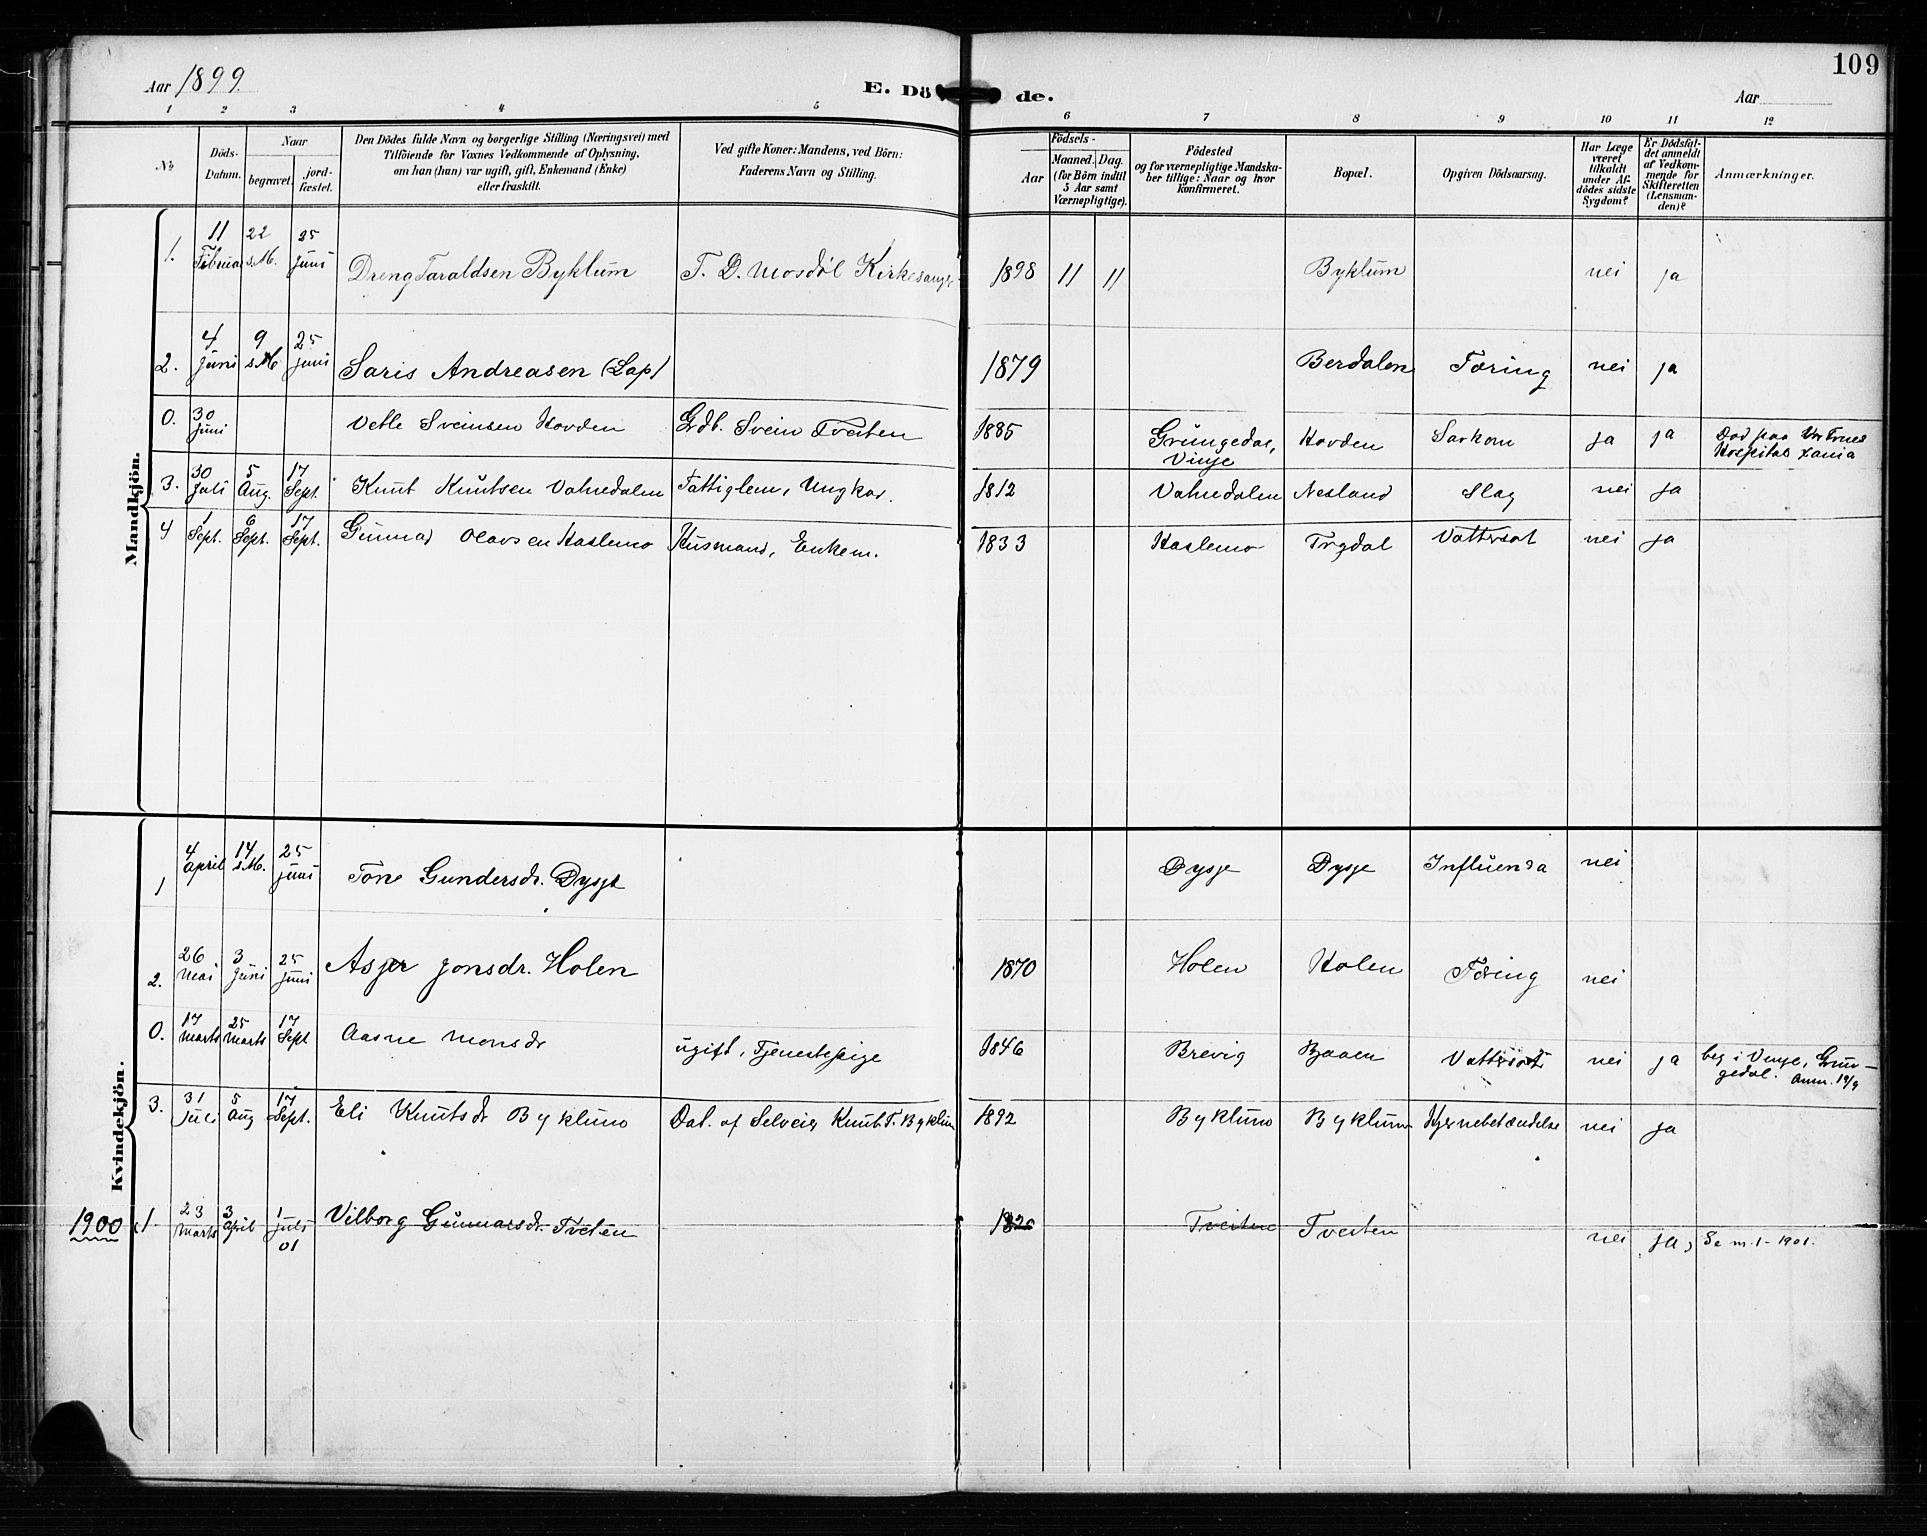 109
Aar 1899.
E. Dö de.
Aar
1 2 3 4 5 6 7 8 9 10 11 12
No
Döds-Datum.
Naar
begravet.
jord-fæstet.
Den Dödes fulde Navn og borgerlige Stilling (Næringsvei) med
Tilföiende for Voxnes Vedkommende af Oplysning,
om han (han) var ugift, gift, Enkemand (Enke)
eller fraskilt.
Ved gifte Koner: Mandens, ved Börn:
Faderens Navn og Stilling.
Födsels-
Aar
Maaned. Dag.
(for Börn indtil
5 Aar samt
Værnepligtige).
Födested
og for værnepligtige Mandska-
ber tillige: Naar og hvor
konfirmeret.
Bopæl.
Opgiven Dödsaarsag.
Har Læge
været
tilkaldt
under Af-
dödes sidste
Sygdom?
Er Dödsfal-
det anmeldt
af Vedkom-
mende for
Skifteretten
(Lensman-
den)?
Anmærkninger.
Mandkjön.
1. 11 Februar 22 s.M. 25 juni Dreng Taraldsen Byklum T. D. Mosdøl Kirkesanger 1898 11 11 Byklum nei ja
2. 4 juni 9 s.M 25 juni Saris Andreasen (Lap) 1879 Berdalen Tæring nei ja
0. 30 juni Vetle Sveinsen Hovden Grdb. Svein Tveiten 1885 Grungedal, Vinje Hovden Sarkom ja ja Død paa Vor Frues Hospital Xania
3. 30 juli 5 Aug. 17 Sept. Knut Knutsen Vatnedalen Fattiglem, Ungkar. 1812 Vatnedalen Nesland Slag nei ja
4 1 Sept. 6 Sept. 17 Sept. Gunnar Olavsen Haslemo Husmand, Enkem. 1833 Haslemo Trydal Vattersot nei ja
Kvindekjön.
1 4 april 14 s.M. 25 juni Tone Gundersdr. Dysje Dysje Dysje Influensa nei
2. 26 mai 3 juni 25 juni Asjer jonsdr. Holen 1870 Holen Holen Tæring nei
0. 17 marts 25 marts 17 Sept Aasne Monsdr ugift, Tjenestepige 1846 Brevig Bjaaen Vattersot nei ja beg i Vinje, Grun-
gedal. Anm. 19/9
3. 31 juli 5 Aug 17 Sept. Eli Knutsdr Byklum Dat. af Selveier Knut T. Byklum 1892 Byklum Byklum Hjernebetændelse nei ja
1900 1. 23 marts 3 april 1 juli 01 Vilborg Gunnarsdr. Tveten 1820 Tveiten Tveiten nei ja, Se m. 1 - 1901.